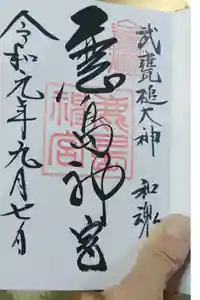 武甕槌大神 和魂
鹿島神宮
令和元年九月七日